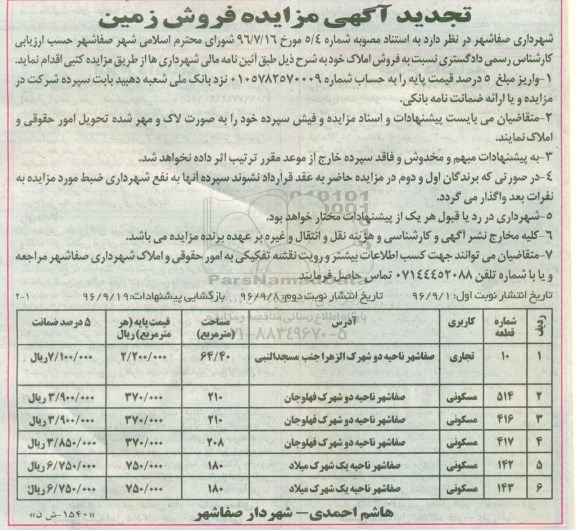 تجدید آگهی مزایده فروش زمین
شهرداری صفاشهر در نظر دارد به استناد مصوبه شماره ۵/۴ مورخ ۹۶/۷/۱۶ شورای محترم اسلامی شهر صفاشهر حسب ارزیابی
کارشناس رسمی دادگستری نسبت به فروش املاک خود به شرح ذیل طبق آئین نامه مالی شهرداری ها از طریق مزایده کتبی اقدام نماید.
۱-واریز مبلغ ۵ درصد قیمت پایه را به حساب شماره ۰۱۰۵۷۸۲۵۷۰۰۰۹ نزد بانک ملی شعبه دهبید بابت سپرده شرکت در
مزایده و یا ارائه ضمانت نامه بانکی.
۲-متقاضیان می بایست پیشنهادات و اسناد مزایده و فیش سپرده خود را به صورت لاک و مهر شده تحویل امور حقوقی و
املاک نمایند.
۳-به پیشنهادات مبهم و مخدوش و فاقد سپرده خارج از موعد مقرر ترتیب اثر داده نخواهد شد.
۴-در صورتی که برندگان اول و دوم در مزایده حاضر به عقد قرارداد نشوند سپرده آنها به نفع شهرداری ضبط مورد مزایده به
نفرات بعد واگذار می گردد.
۵-شهرداری در رد یا قبول هر یک از پیشنهادات مختار خواهد بود.
۶-کلیه مخارج نشر آگهی و کارشناسی و هزینه نقل و انتقال و غیره بر عهده برنده مزایده می باشد.
۷-متقاضیان می توانند جهت کسب اطلاعات بیشتر و رویت نقشه تفکیکی به امور حقوقی و املاک شهرداری صفاشهر مراجعه
و یا با شماره تلفن ۰۷۱۴۴۴۵۲۰۸۸ تماس حاصل فرمایند
تاریخ انتشار نوبت اول: ۹۶/۹/۱ تاریخ انتشار نوبت دوم: ۹۶/۹/۸ بازگشایی پیشنهادات: ۹۶/۹/۱۹ ۲-۱
ردیف شماره قطعه کاربری آدرس مساحت (مترمربع) قیمت پایه (هر مترمربع) ریال ۵ درصد ضمانت
۱ ۱۰ تجاری صفاشهر ناحیه دو شهرک الزهرا جنب مسجدالنبی ۶۴/۴۰ ۲/۲۰۰/۰۰۰ ۷/۱۰۰/۰۰۰ ریال
۲ ۵۱۴ مسکونی صفاشهر ناحیه دو شهرک قهلوجان ۲۱۰ ۳۷۰/۰۰۰ ۳/۹۰۰/۰۰۰ ریال
۳ ۴۱۶ مسکونی صفاشهر ناحیه دو شهرک قهلوجان ۲۱۰ ۳۷۰/۰۰۰ ۳/۹۰۰/۰۰۰ ریال
۴ ۴۱۷ مسکونی صفاشهر ناحیه دو شهرک قهلوجان ۲۰۸ ۳۷۰/۰۰۰ ۳/۸۵۰/۰۰۰ ریال
۵ ۱۴۲ مسکونی صفاشهر ناحیه یک شهرک میلاد ۱۸۰ ۷۵۰/۰۰۰ ۶/۷۵۰/۰۰۰ ریال
۶ ۱۴۳ مسکونی صفاشهر ناحیه یک شهرک میلاد ۱۸۰ ۷۵۰/۰۰۰ ۶/۷۵۰/۰۰۰ ریال
هاشم احمدی- شهردار صفاشهر
«۱۵۴۰-ش ن»